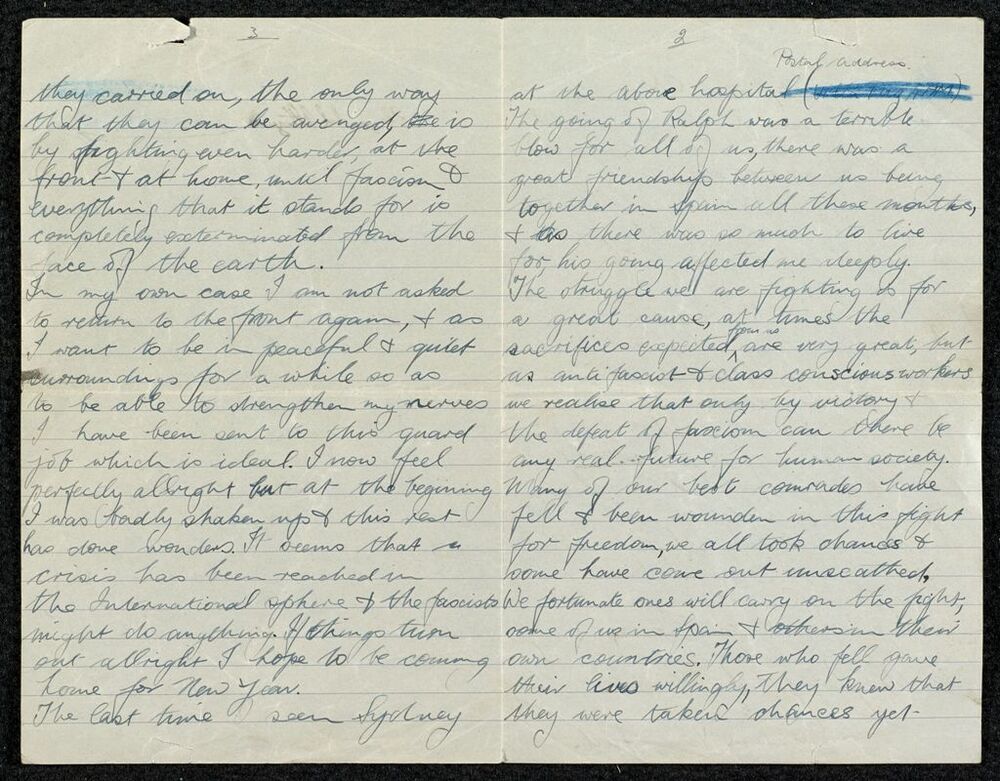 2
Postal address.
at the above hospital
The going of Ralph was a terrible
blow for all of us, there was a
great friendship between us being
together in Spain all these months,
& as there was so much to live
for, his going affected me deeply.
The struggle we are fighting is for
a great cause, at times the
sacrifices expected from us are very great, but
as anti fascist & class conscious workers
we realise that only by victory &
the defeat of fascism can there be
any real future for human society.
Many of our best comrades have
fell & been wounden in this fight
for freedom, we all took chances &
some have come out unscathed,
We fortunate ones will carry on the fight,
some of us in Spain & others in their
own countries. Those who fell gave
their lives willingly, They knew that
they were taken chances yet-
3
they carried on, the only way
that they can be avenged is
by fighting even harder, at the
front & at home, until fascism &
everything that it stands for is
completely exterminated from the
face of the earth.
In my own case I am not asked
to return to the front again, & as
I want to be in peaceful & quiet
surroundings for a while so as
to be able to strengthen my nerves
I have been sent to this guard
job which is ideal. I now feel
perfectly allright but at the begining
I was badly shaken up & this rest
has done wonders. It seems that a
crisis has been reached in
the International sphere & the fascists
might do anything. If things turn
out allright I hope to be coming
home for New Year.
The last time I seen Sydney